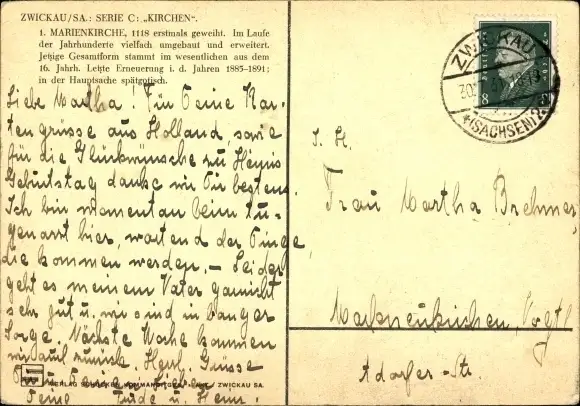 ZWICKAU/SA.: SERIE C: „KIRCHEN“.
1. MARIENKIRCHE, 1118 erstmals geweiht. Im Laufe
der Jahrhunderte vielfach umgebaut und erweitert.
Jetzige Gesamtform stammt im wesentlichen aus dem
16. Jahrh. Letzte Erneuerung i. d. Jahren 1885–1891;
in der Hauptsache spätgotisch.
Liebe Martha! Für Deine Kar-
tengrüsse aus Holland, sowie
für die Glückwünsche zu Heinis
Geburtstag danke wir Dir bestens.
Ich bin momentan beim
hier, wartend der Dinge,
die kommen werden. – Leider
geht es meinem Vater garnicht
sehr gut u. wir sind in banger
Sorge. Nächste Woche kommen
wir auf zurück. Herzl. Grüsse
Deine Trude u. Heini.
VERLAG SCHOCKEN ZWICKAU SA.
ZWICKAU
(SACHSEN) 2
8
8
S. H.
Frau Martha Brehmer,
Markneukirchen, Vogtl
Adorfer-Str.